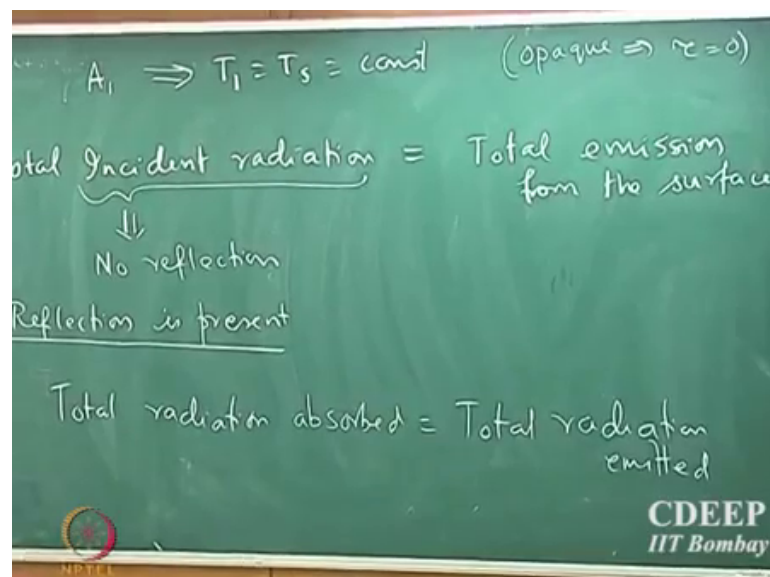 A₁ ⇒ T₁ = Tₛ = const (opaque ⇒ τ=0)
otal Incident radiation = Total emission
from the surface
⇓
No reflection
Reflection is present
Total radiation absorbed = Total radiation
emitted
CDEEP
IIT Bombay
NPTEL